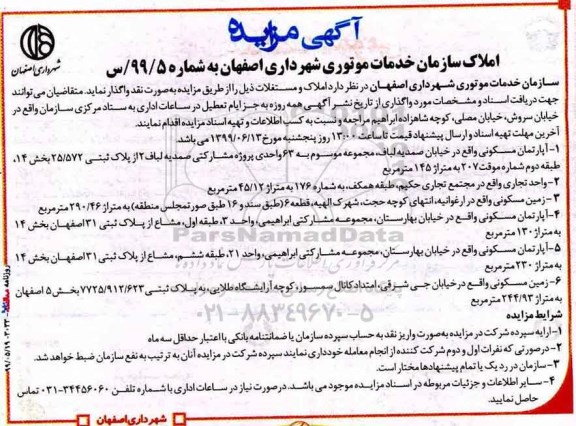 آگهی مزایده
شهرداری اصفهان
املاک سازمان خدمات موتوری شهرداری اصفهان به شماره ۹۹/۵/س
سازمان خدمات موتوری شهرداری اصفهان در نظر دارد املاک و مستغلات ذیل را از طریق مزایده به صورت نقد واگذار نماید. متقاضیان می‌توانند
جهت دریافت اسناد و مشخصات مورد واگذاری از تاریخ نشر آگهی همه روزه به جز ایام تعطیل در ساعات اداری به ستاد مرکزی سازمان واقع در
خیابان سروش، خیابان مصلی، کوچه شاهزاده ابراهیم مراجعه و نسبت به کسب اطلاعات و تهیه اسناد مزایده اقدام نمایند.
آخرین مهلت تهیه اسناد و ارسال پیشنهاد قیمت تا ساعت ۱۳:۰۰ روز پنجشنبه مورخ ۱۳۹۹/۰۶/۱۳ می باشد.
۱- آپارتمان مسکونی واقع در خیابان صمدیه لباف، مجموعه موسوم به ۶۳ واحدی پروژه مشارکتی صمدیه لباف ۲ از پلاک ثبتی ۲۵/۵۷۲ بخش ۱۴،
طبقه دوم شماره موقت ۲۰۷ به متراژ ۱۴۵ مترمربع
۲- واحد تجاری واقع در مجتمع تجاری حکیم، طبقه همکف، به شماره ۱۷۶ به متراژ ۴۵/۱۲ مترمربع
۳- زمین مسکونی واقع در ارغوانیه، انتهای کوچه حجت، شهرک الهیه، قطعه ۶ (طبق سند و ۱۶ طبق صورتمجلس منطقه) به متراژ ۲۹۰/۴۶ مترمربع
۴- آپارتمان مسکونی واقع در خیابان بهارستان، مجموعه مشارکتی ابراهیمی، واحد ۳، طبقه اول، مشاع از پلاک ثبتی ۳۱ اصفهان بخش ۱۴
به متراژ ۱۳۰ مترمربع
۵- آپارتمان مسکونی واقع در خیابان بهارستان، مجموعه مشارکتی ابراهیمی، واحد ۲۱، طبقه ششم، مشاع از پلاک ثبتی ۳۱ اصفهان بخش ۱۴
به متراژ ۲۳۰ مترمربع
۶- زمین مسکونی واقع در خیابان جی شرقی، امتداد کانال سمسوز، کوچه آرایشگاه طلایی، به پلاک ثبتی ۷۷۲۵/۹۱۲/۶۲۳ بخش ۵ اصفهان
به متراژ ۲۴۴/۹۳ مترمربع
شرایط مزایده
۱- ارایه سپرده شرکت در مزایده به صورت واریز نقد به حساب سپرده سازمان یا ضمانتنامه بانکی با اعتبار حداقل سه ماه
۲- درصورتی که نفرات اول و دوم شرکت کننده از انجام معامله خودداری نمایند سپرده شرکت در مزایده آنان به ترتیب به نفع سازمان ضبط خواهد شد.
۳- سازمان در رد یک یا تمام پیشنهادها مختار است.
۴- سایر اطلاعات و جزئیات مربوطه در اسناد مزایده موجود می باشد. درصورت نیاز در ساعات اداری با شماره تلفن ۳۴۴۵۶۰۶۰-۰۳۱ تماس
حاصل نمایید.
شهرداری اصفهان
ParsNamadData
۰۲۱-۸۸۳۴۹۶۷۰-۵